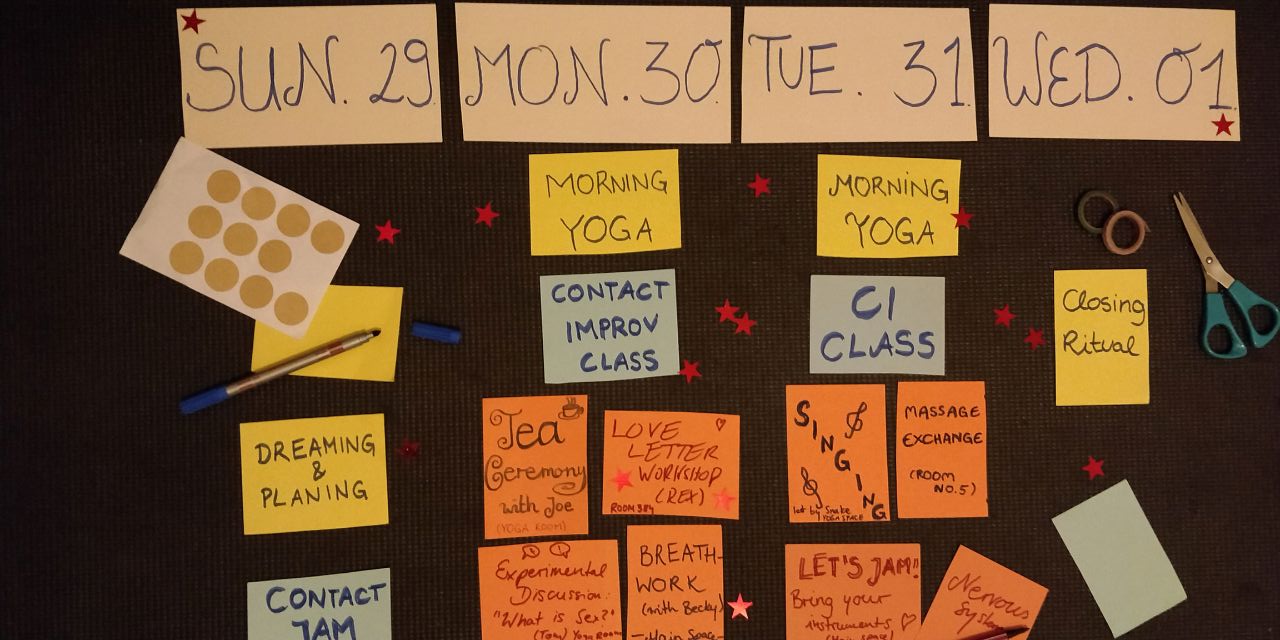 SUN. 29
MON. 30
TUE. 31
WED. 01
MORNING
YOGA
MORNING
YOGA
CONTACT
IMPROV
CLASS
CI
CLASS
Closing
Ritual
DREAMING
&
PLANING
Tea
Ceremony
with Joe
(YOGA ROOM)
LOVE
LETTER
WORKSHOP
(REX)
ROOM 384
SINGING
led by Snake
YOGA SPACE
MASSAGE
EXCHANGE
(ROOM
NO.5)
CONTACT
JAM
Experimental
Discussion:
"What is Sex?"
(Tom) Yoga Room
BREATH-
WORK
(with Becky)
-Main Space-
LET'S JAM!
Bring your
instruments
(Main space)
Nervous
System